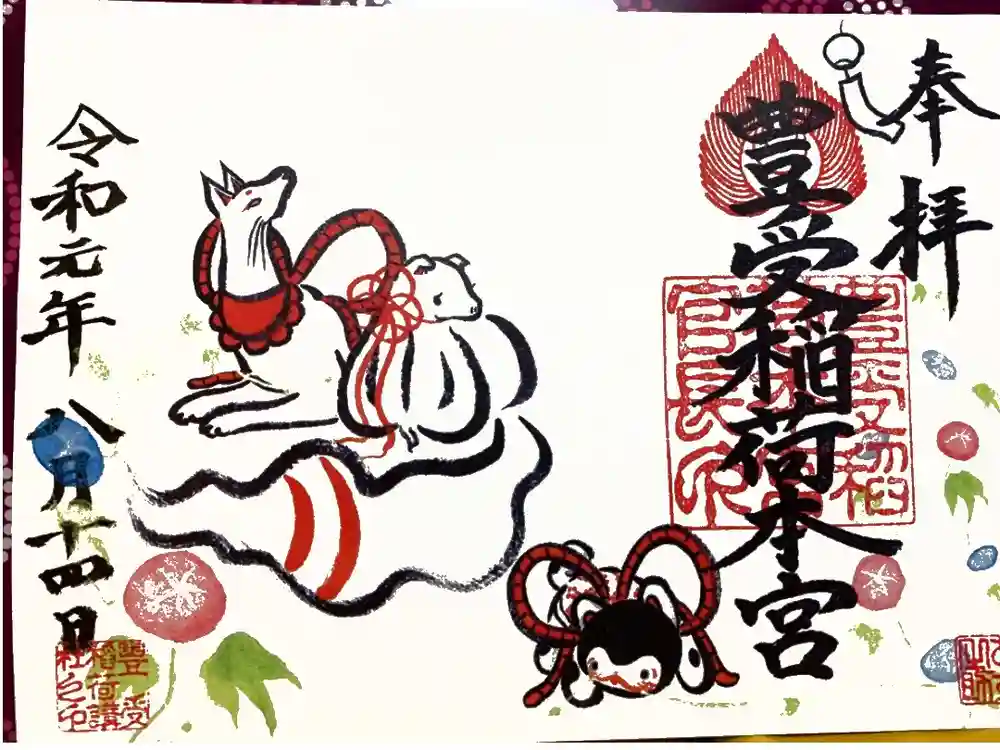 奉拝
豊受稲荷本宮
令和元年八月十四日
豐受
稲荷講
社之印